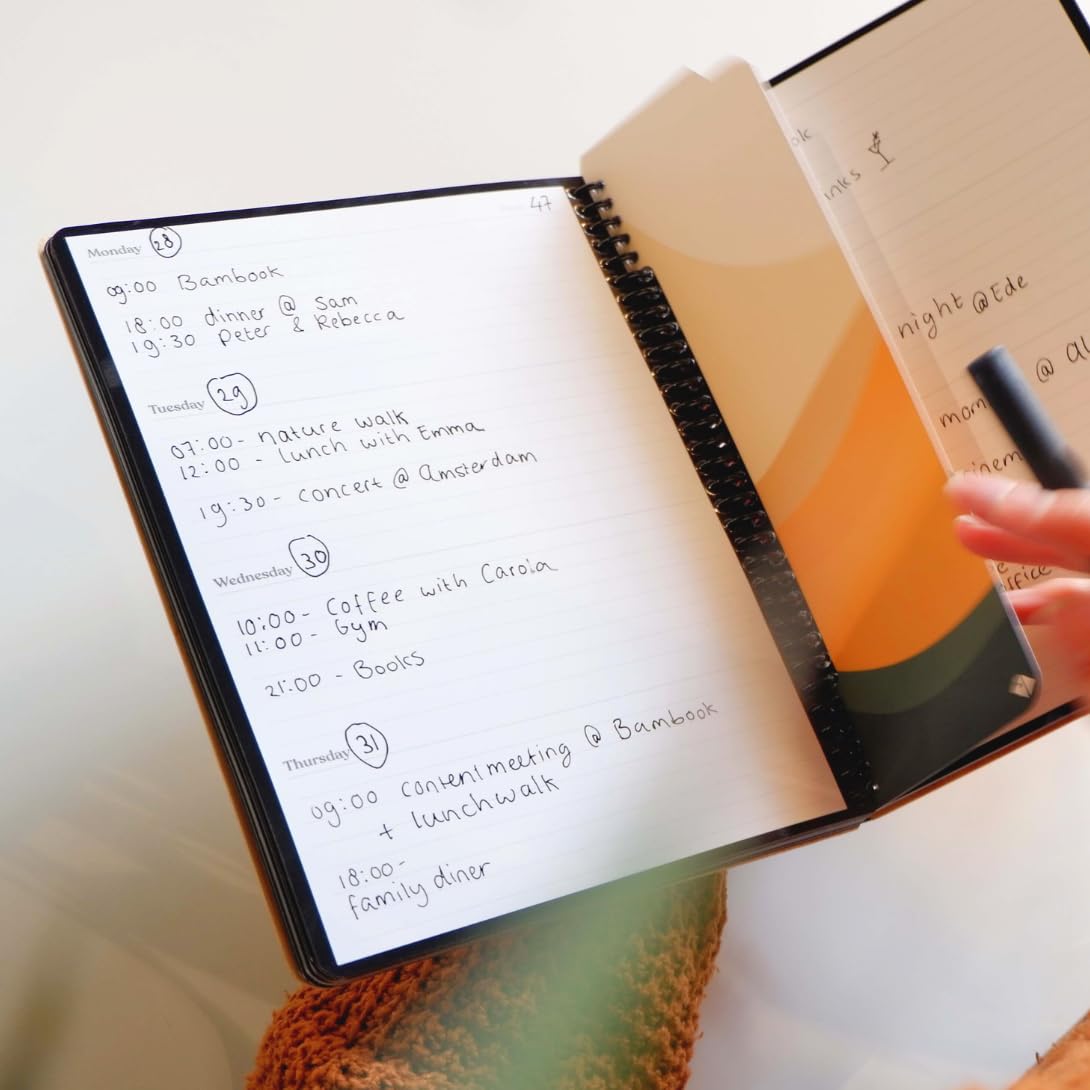 47
Monday 28
09:00 Bambook
18:00 dinner @ Sam
19:30 Peter & Rebecca
Tuesday 29
07:00 - nature walk
12:00 - lunch with Emma
19:30 - concert @ amsterdam
Wednesday 30
10:00 - Coffee with Carola
11:00 - Gym
21:00 - Books
Thursday 31
09:00 content meeting @ Bambook
+ lunchwalk
18:00 -
family diner
night @Ede
@